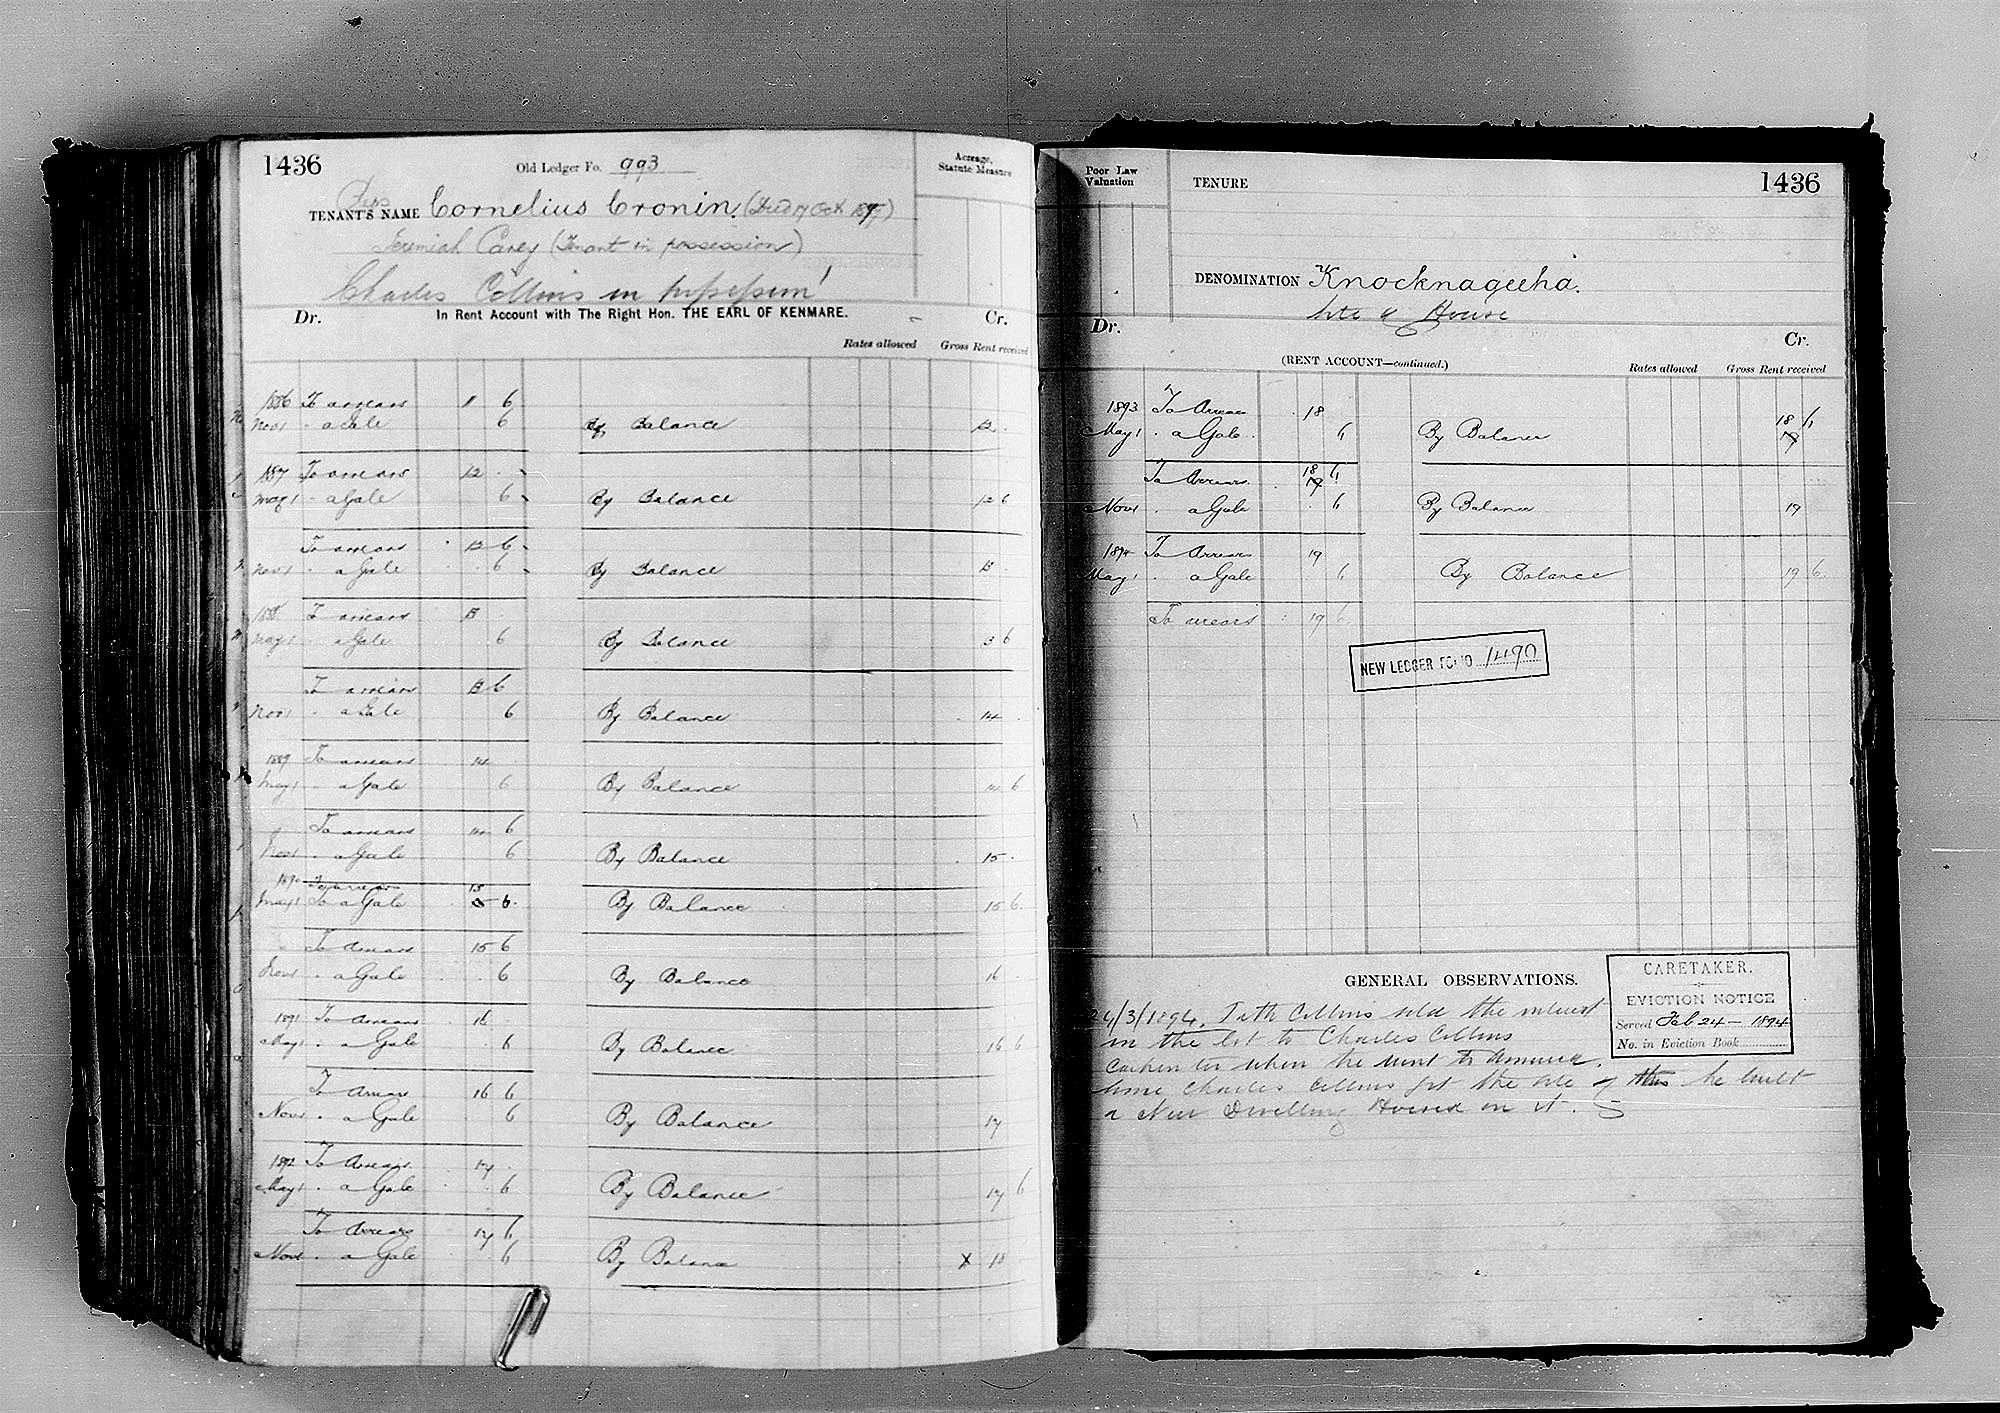 1436
Old Ledger Fo. 993
Acreage, Statute Measure
Reps
TENANT'S NAME Cornelius Cronin. (Died 17 Oct
Jeremiah Carey (Tenant in possession)
Charles Collins in
Dr. In Rent Account with The Right Hon. THE EARL OF KENMARE. Cr.
Rates allowed Gross Rent received
1886 To arrears 11 6
Nov 1 " a Gale 6 By Balance 12
1887 To arrears 12
May 1 " a Gale 6 By Balance 12 6
To arrears 12 6
Nov 1 " a Gale 6 By Balance 13
1888 To arrears 13
May 1 " a Gale 6 By Balance 13 6
To arrears 13 6
Nov 1 " a Gale 6 By Balance 14
1889 To arrears 14
May 1 a Gale 6 By Balance 14 6
To arrears 14 6
Nov 1 " a Gale 6 By Balance 15
1890 To arrears 15
May 1 To a Gale 6 By Balance 15 6
To Arrears 15 6
Nov 1 " a Gale 6 By Balance 16
1891 To Arrears 16
May 1 " a Gale 6 By Balance 16 6
To Arrears 16 6
Nov 1 " a Gale 6 By Balance 17
1892 To Arrears 17
May 1 " a Gale 6 By Balance 17 6
To Arrears 17 6
Nov 1 " a Gale 6 By Balance X 18
Poor Law Valuation
TENURE
1436
DENOMINATION Knocknageeha.
Site of House
Dr. Cr.
(RENT ACCOUNT—continued.)
Rates allowed Gross Rent received
1893 To Arrears 18
May 1 " a Gale 6 By Balance 18 6
To Arrears 18 6
Nov 1 a Gale 6 By Balance 19
1894 To Arrears 19
May 1 " a Gale 6 By Balance 19 6
To arrears 19 6
NEW LEDGER FOLIO 1490
GENERAL OBSERVATIONS.
CARETAKER.
EVICTION NOTICE
Served Feb 24 - 1894
No. in Eviction Book
24/3/1894. Collins sold the interest
in the lot to Charles Collins
when she went to
Charles Collins got the site of this he built
a New Dwelling House on it.